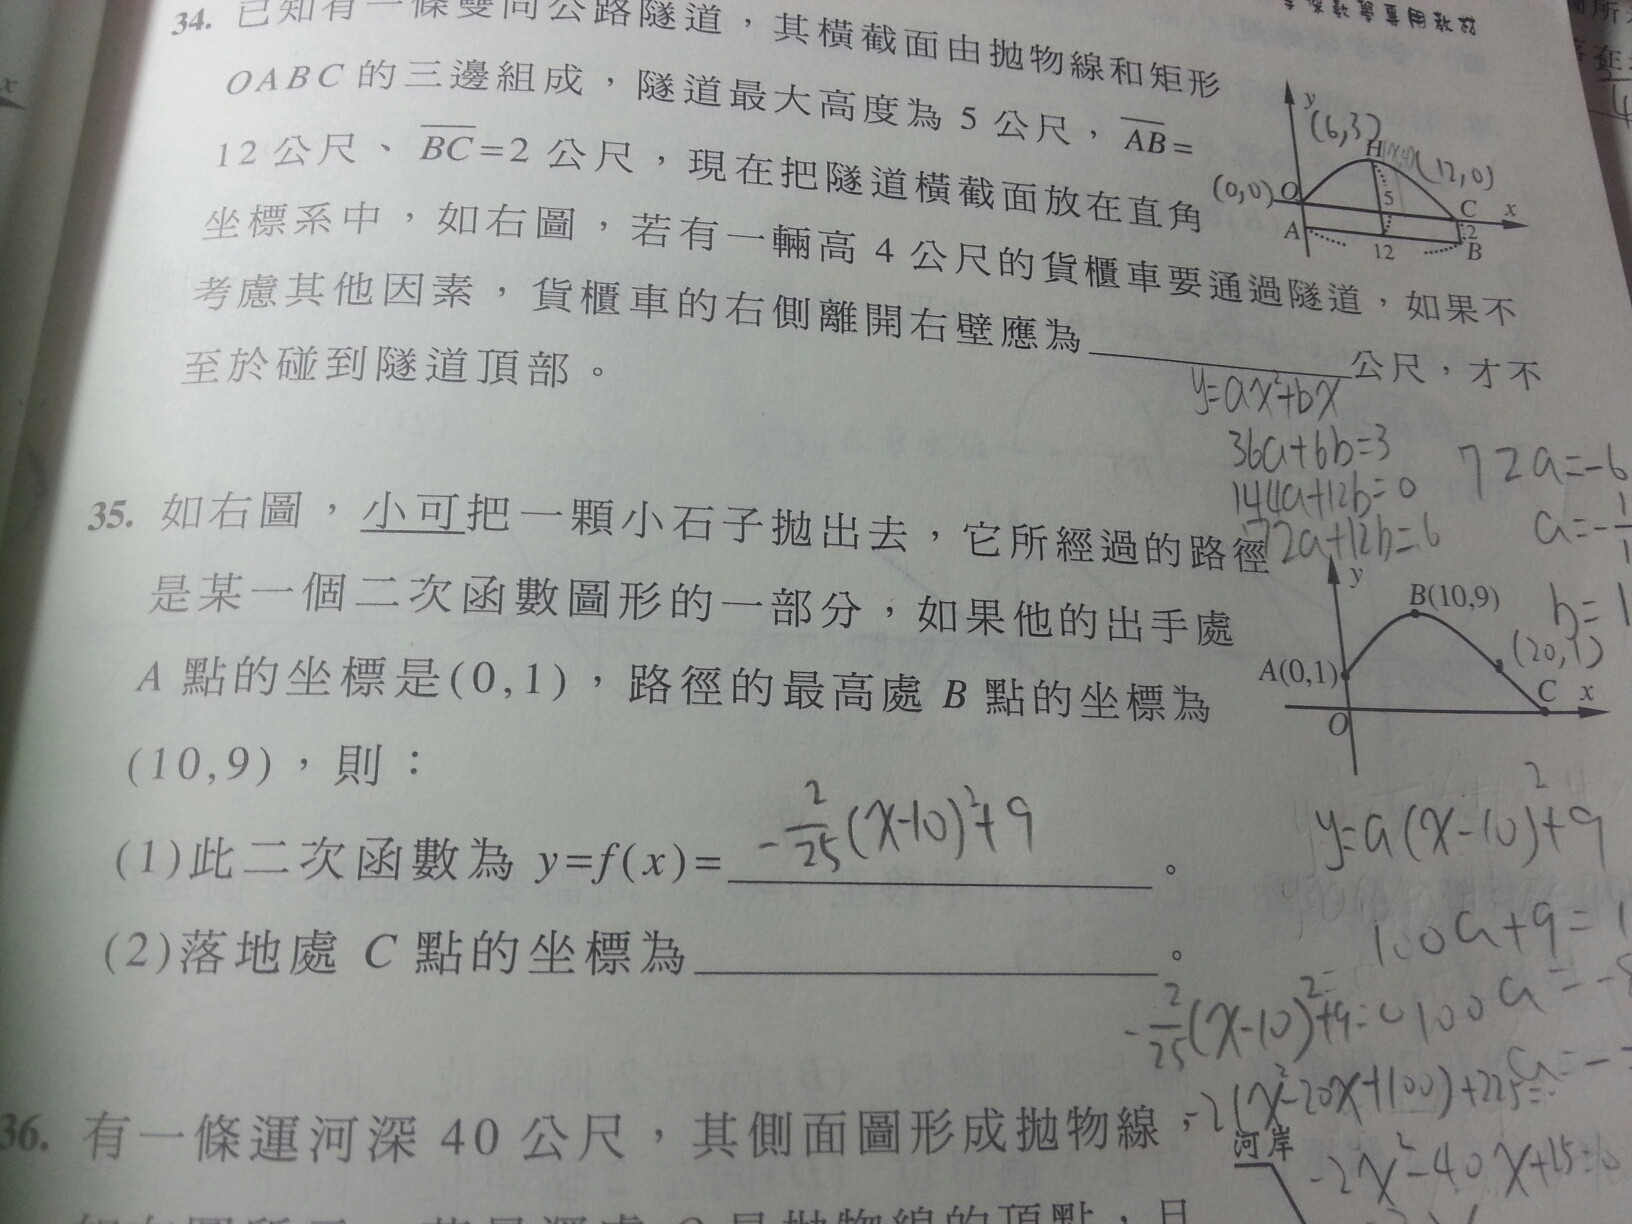 34. 已知有一條雙向公路隧道，其橫截面由拋物線和矩形
OABC的三邊組成，隧道最大高度為5公尺，AB=
12公尺、BC=2公尺，現在把隧道橫截面放在直角
坐標系中，如右圖，若有一輛高4公尺的貨櫃車要通過隧道，如果不
考慮其他因素，貨櫃車的右側離開右壁應為____公尺，才不
至於碰到隧道頂部。
y
(6,3)
H
(12,0)
(0,0)
O
5
C
x
A
12
2
B
y=ax²+bx
36a+6b=3
144a+12b=0
72a+12b=6
72a=-6
35. 如右圖，小可把一顆小石子拋出去，它所經過的路徑
是某一個二次函數圖形的一部分，如果他的出手處
A點的坐標是(0,1)，路徑的最高處B點的坐標為
(10,9)，則：
(1)此二次函數為 y=f(x)= -2/25(x-10)²+9 。
(2)落地處 C 點的坐標為____。
y
B(10,9)
(20,1)
A(0,1)
C
x
O
y=a(x-10)²+9
100a+9=1
-2/25(x-10)²+9=0
-2(x²-20x+100)+225=
36. 有一條運河深40公尺，其側面圖形成拋物線，
河岸